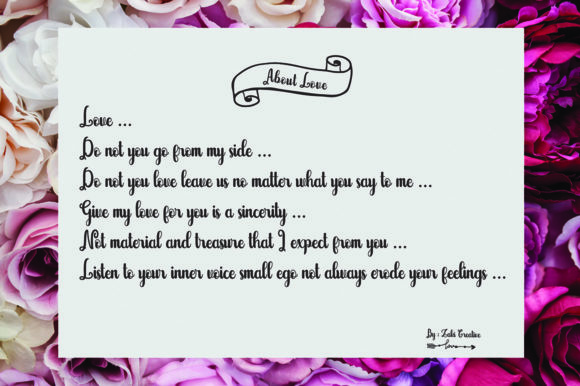 About Love
Love ...
Do not you go from my side ...
Do not you love leave us no matter what you say to me ...
Give my love for you is a sincerity ...
Not material and treasure that I expect from you ...
Listen to your inner voice small ego not always erode your feelings ...
By : Zabs Creative
love